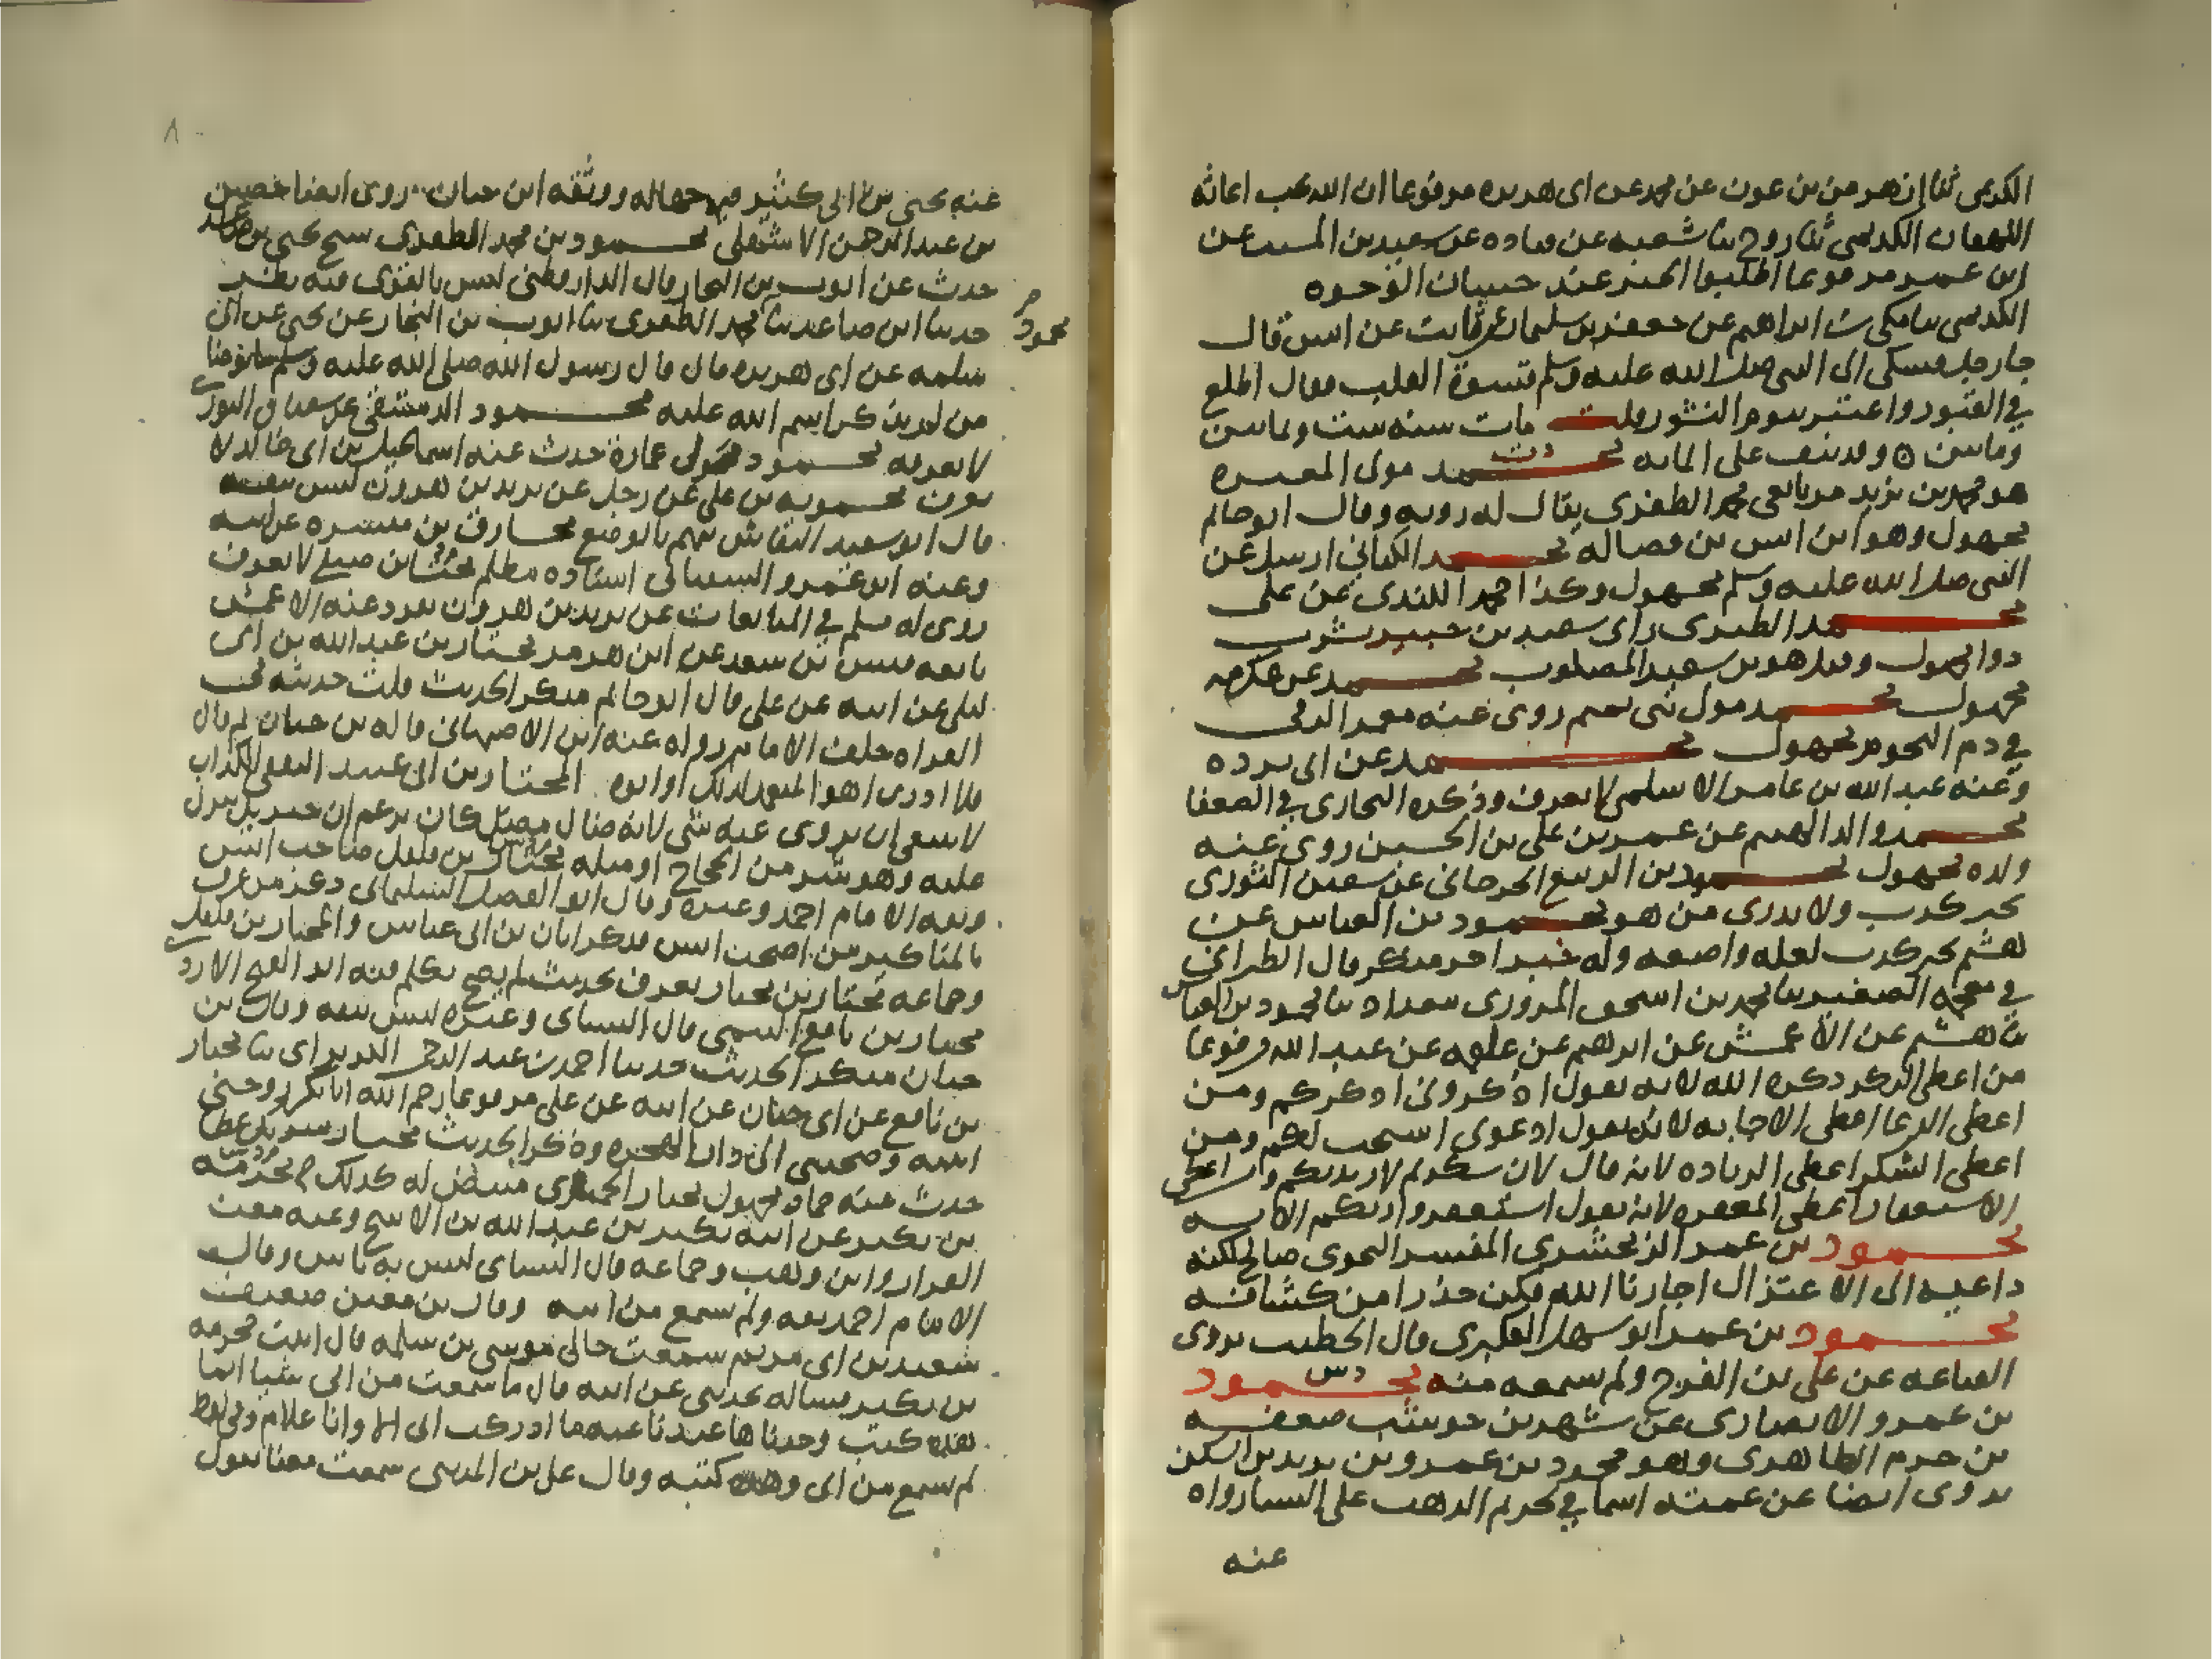 الكديمي ثنا ازهر من بن عون عن محمد عن ابي هريره مرفوعا ان الله يحب اغاثه
اللهفان الكديمي ثنا روح ثنا شعبه عن قتاده عن سعيد بن المسيب عن
ابن عمر مرفوعا اطلبوا الخير عند حسان الوجوه
الكديمي ثنا مكي بن ابراهيم عن جعفر بن سليمان عن ثابت عن انس قال
جا رجل فشكى الى النبي صلى الله عليه وسلم قسوة القلب فقال اطلع
في القبور واعتبر بيوم النشور قلت مات سنه ست وثمانين
ومايتين ٥ وقد نيف على المايه محمد مولى المغيره
هو محمد بن يزيد مر تابعي محمد الظفري يقال له رويه وقال ابو حاتم
مجهول وهو ابن انس بن فضاله محمد الكناني ارسل عن
النبي صلى الله عليه وسلم مجهول وكذا محمد الكندي عن علي
محمد الطبري راى سعيد بن جبير يشرب
دوا مجهول وقيل هو بن سعيد المصلوب محمد عن عكرمه
مجهول محمد مولى بني تميم روى عنه معمر الرقي
في ذم النجوم مجهول محمد عن ابي برده
وعنه عبد الله بن عامر الاسلمي لا يعرف وذكره البخاري في الضعفا
محمد والد الهيثم عن عمر بن علي بن الحسين روى عنه
ولده مجهول محمد بن الربيع الجرجاني عن سفين الثوري
بخبر كذب ولا يدرى من هو محمود بن العباس عن
هشيم بخبر كذب لعله واضعه وله خبر اخر منكر قال الطبراني
في معجمه الصغير ثنا محمد بن اسحق المروزي ببغداد ثنا محمود بن العباس
ثنا هشيم عن الاعمش عن ابرهيم عن علقمه عن عبد الله مرفوعا
من اعطي الذكر ذكره الله لانه يقول اذكروني اذكركم ومن
اعطي الدعا اعطي الاجابه لانه يقول ادعوني استجب لكم ومن
اعطي الشكر اعطي الزياده لانه قال لان شكرتم لازيدنكم ومن اعطي
الاستغفار اعطي المغفره لانه يقول استغفروا ربكم الايه
محمود بن عمر الزمخشري المفسر النحوي صالح لكنه
داعيه الى الاعتزال اجارنا الله فكن حذرا من كشافه
محمود بن عمر ابو سهل العكبري قال الخطيب يروى
القناعه عن علي بن الفرج ولم يسمعه منه محمود
بن عمرو الانصاري عن شهر بن حوشب ضعفه
بن حزم الظاهري وهو محمود بن عمرو بن يزيد بن السكن
يروى ايضا عن عمته اسما في تحريم الذهب على النسا رواه
عنه
عنه يحيى بن ابي كثير فيه جهاله ووثقه ابن حبان روى ايضا حصين
بن عبد الرحمن الاشهلي محمود بن محمد الظفري شيخ يحيى بن صاعد
حدث عن ايوب بن النجار قال الدارقطني ليس بالقوى فيه نظر
حدثنا ابن صاعد ثنا محمد الظفري ثنا ايوب بن النجار عن يحيى عن ابي
محمود
سلمه عن ابي هريره قال قال رسول الله صلى الله عليه وسلم ما توضا
من لم يذكر اسم الله عليه محمود الدمشقي عن سفيان الثوري
لا يعرف محمود مولى عماره حدث عنه اسماعيل بن ابي خالد لا
يعرف محمويه بن علي عن رجل عن يزيد بن هرون ليس بثقه
قال ابو سعيد النقاش يتهم بالوضع مخارق بن ميسره عن ابيه
وعنه ابو عمرو الشيباني اسناده مظلم مختار بن صيفي لا يعرف
روى له مسلم في المتابعات عن يزيد بن هرمز تفرد عنه الاعمش
تابعه قيس بن سعد عن ابن هرمز مختار بن عبد الله بن ابي
ليلى عن ابيه عن علي قال ابو حاتم منكر الحديث قلت حديثه في
القراه خلف الامام رواه عنه ابن الاصبهاني قاله بن حبان ثم قال
فلا ادري اهو المتعمد لذلك او ابوه المختار بن ابي عبيد الثقفي الكذاب
لا ينبغي ان يروى عنه شي لانه ضال مضل كان يزعم ان جبريل ينزل
عليه وهو شر من الحجاج او مثله مختار بن فلفل صاحب انس
وثقه الامام احمد وغيره وقال ابو الفضل السليماني ذكر من عرف
بالمناكير من اصحاب انس فذكر ابان بن ابي عياش والمختار بن فلفل
وجماعه مختار بن مختار يعرف بحديث لم يصح تكلم فيه ابو الفتح الازدي
مختار بن نافع التيمي قال النسائي وغيره ليس بثقه وقال بن
حبان منكر الحديث حدثنا احمد بن عبد الرحمن ثنا مختار
بن نافع عن ابي حيان عن ابيه عن علي مرفوعا رحم الله ابا بكر زوجني
ابنته وصحبني الى دار الهجره وذكر الحديث مختار شريك عطا
حدث عنه حماد مجهول مختار الحميري كذلك مخرمه
بن بكير عن ابيه بكير بن عبد الله بن الاشج وعنه معن
القزاز وابن وهب وجماعه قال النسائي ليس به باس وقال
الامام احمد ثقه ولم يسمع من ابيه وقال بن معين ضعيف
سعيد بن ابي مريم سمعت خالي موسى بن سلمه قال اتيت مخرمه
بن بكير فسالته يحدثني عن ابيه قال ما سمعت من ابي شيا انما
هذه كتب وجدناها عندنا عنه ما ادركت ابي الا وانا غلام وفي لفظ
لم اسمع من ابي وهذه كتبه وقال علي بن المديني سمعت معنا يقول